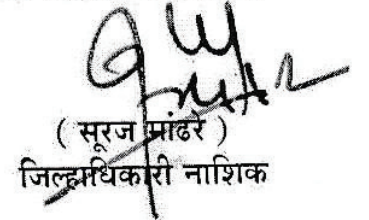 ( सूरज मांढरे )
जिल्हाधिकारी नाशिक